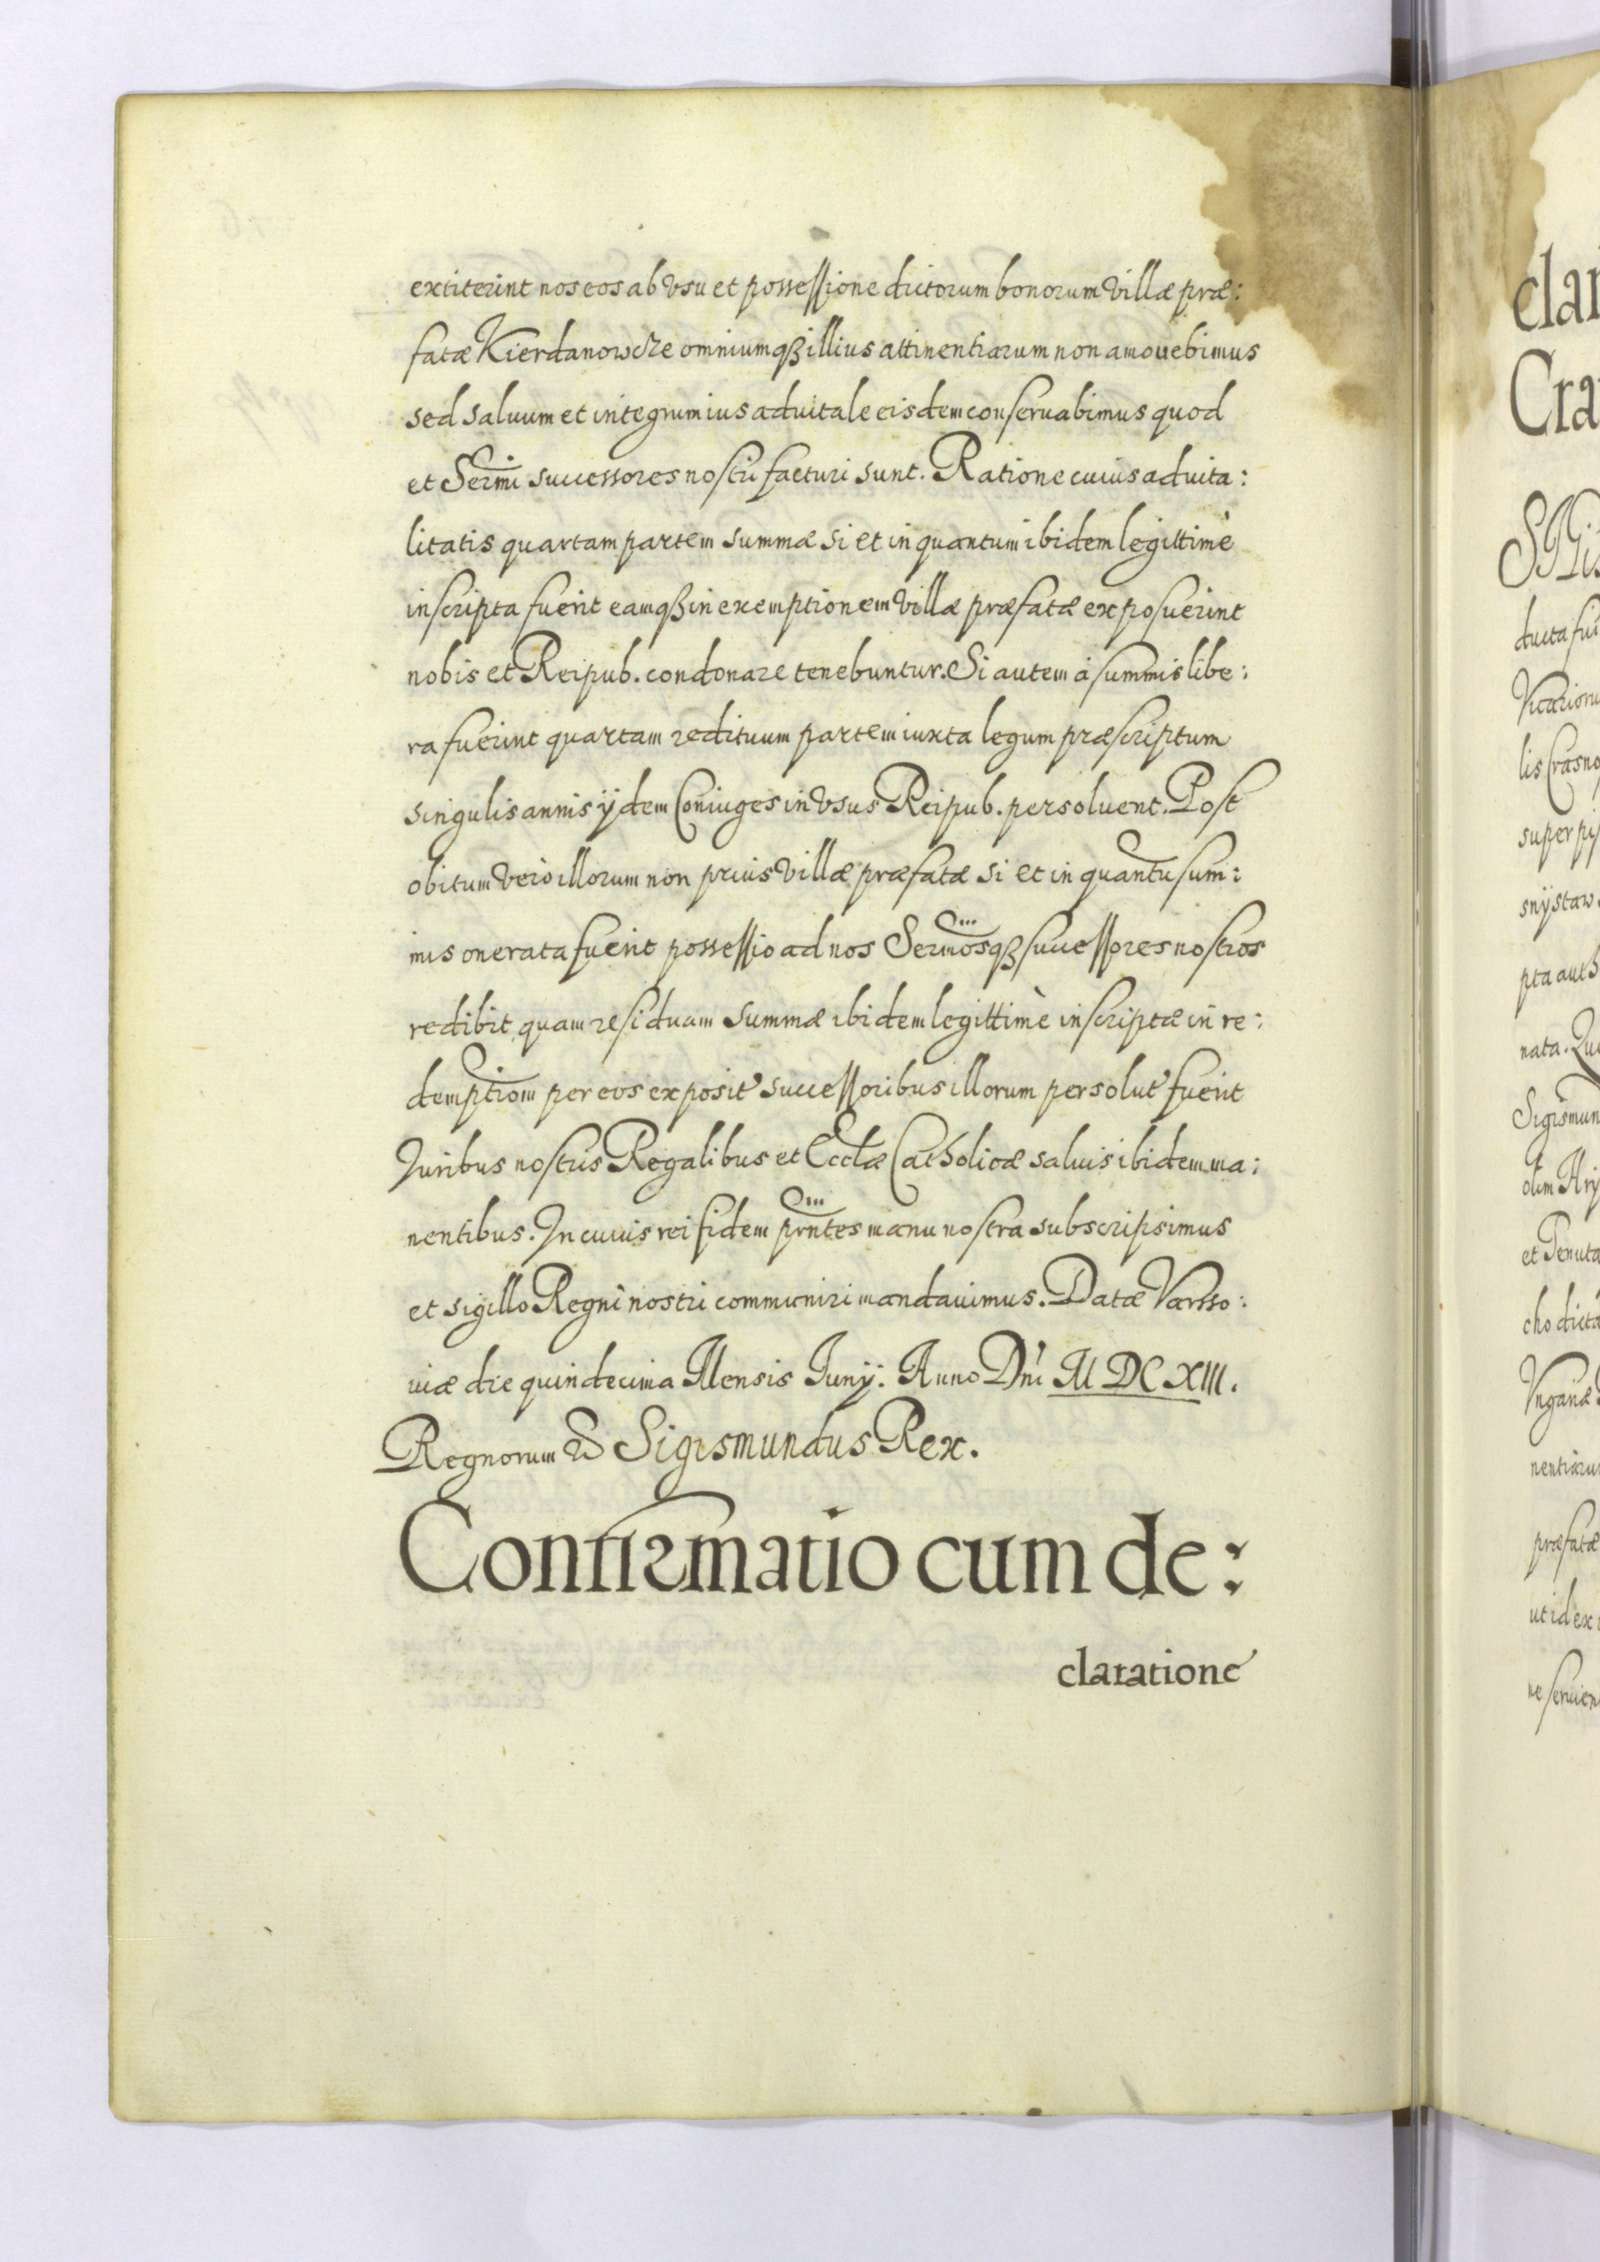 extiterint nos eos ab vsu et possessione dictorum bonorum villæ præ:
fatæ Kierdanowcze omniumqß illius attinentiarum non amouebimus
sed saluum et integrum ius aduitale eisdem conseruabimus quod
et Sermi successores nostri facturi sunt. Ratione cuius aduita:
litatis quartam partem summæ si et in quantum ibidem legittimè
inscripta fuerit eamqß in exemptionem villæ præfatæ exposuerint
nobis et Reipub. condonare tenebuntur. Si autem à summis libe:
ra fuerint quartam redituum partem iuxta legum præscriptum
singulis annis ÿdem Coniuges in vsus Reipub. persoluent. Post
obitum verò illorum non prius villæ præfatæ si et in quantū sum:
mis onerata fuerit possessio ad nos Sermosqß successores nostros
redibit quam residuam summæ ibidem legittimè inscriptæ in re:
demptiom per eos exposit' successoribus illorum persolut' fuerit
Juribus nostris Regalibus et Ecclæ Catholicæ saluis ibidem ma:
nentibus. In cuius rei fidem prntes manu nostra subscripsimus
et sigillo Regni nostri communiri mandauimus. Datæ Varsso:
uiæ die quindecima Mensis Junÿ: Anno Dni M DC XIII.
Regnorum Sigismundus Rex.
Confirmatio cum de:
claratione
clar
Cra
ducta fui
Vicarioru
lis Crasno
super
snÿstaw
pta auth
nata.
Sigismun
olim
et Tenuta
cho dicta
nentiaru
præfatæ
ut id ex
ne seruien